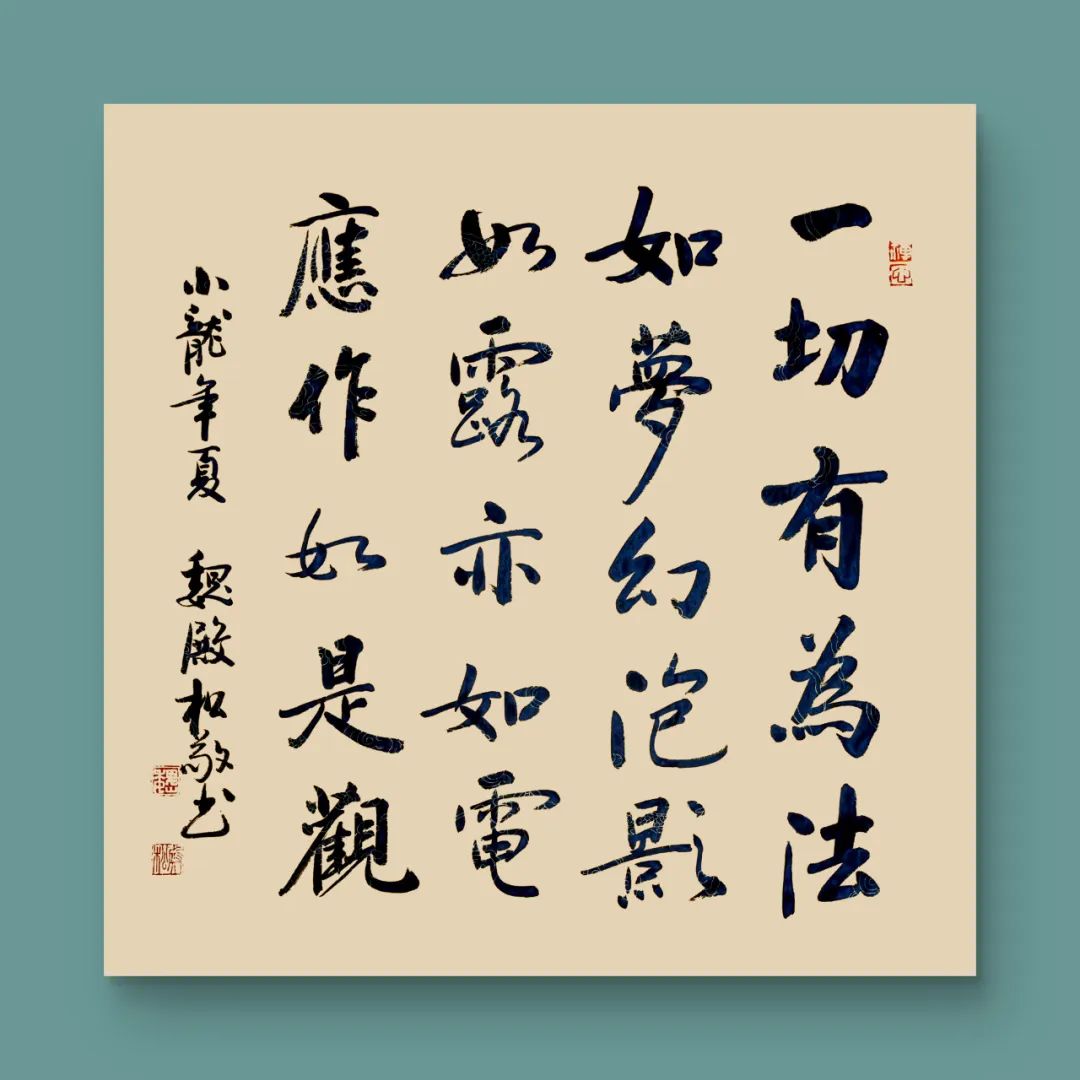 一切有為法
如夢幻泡影
如露亦如電
應作如是觀
小龍年夏 魏殿松敬书